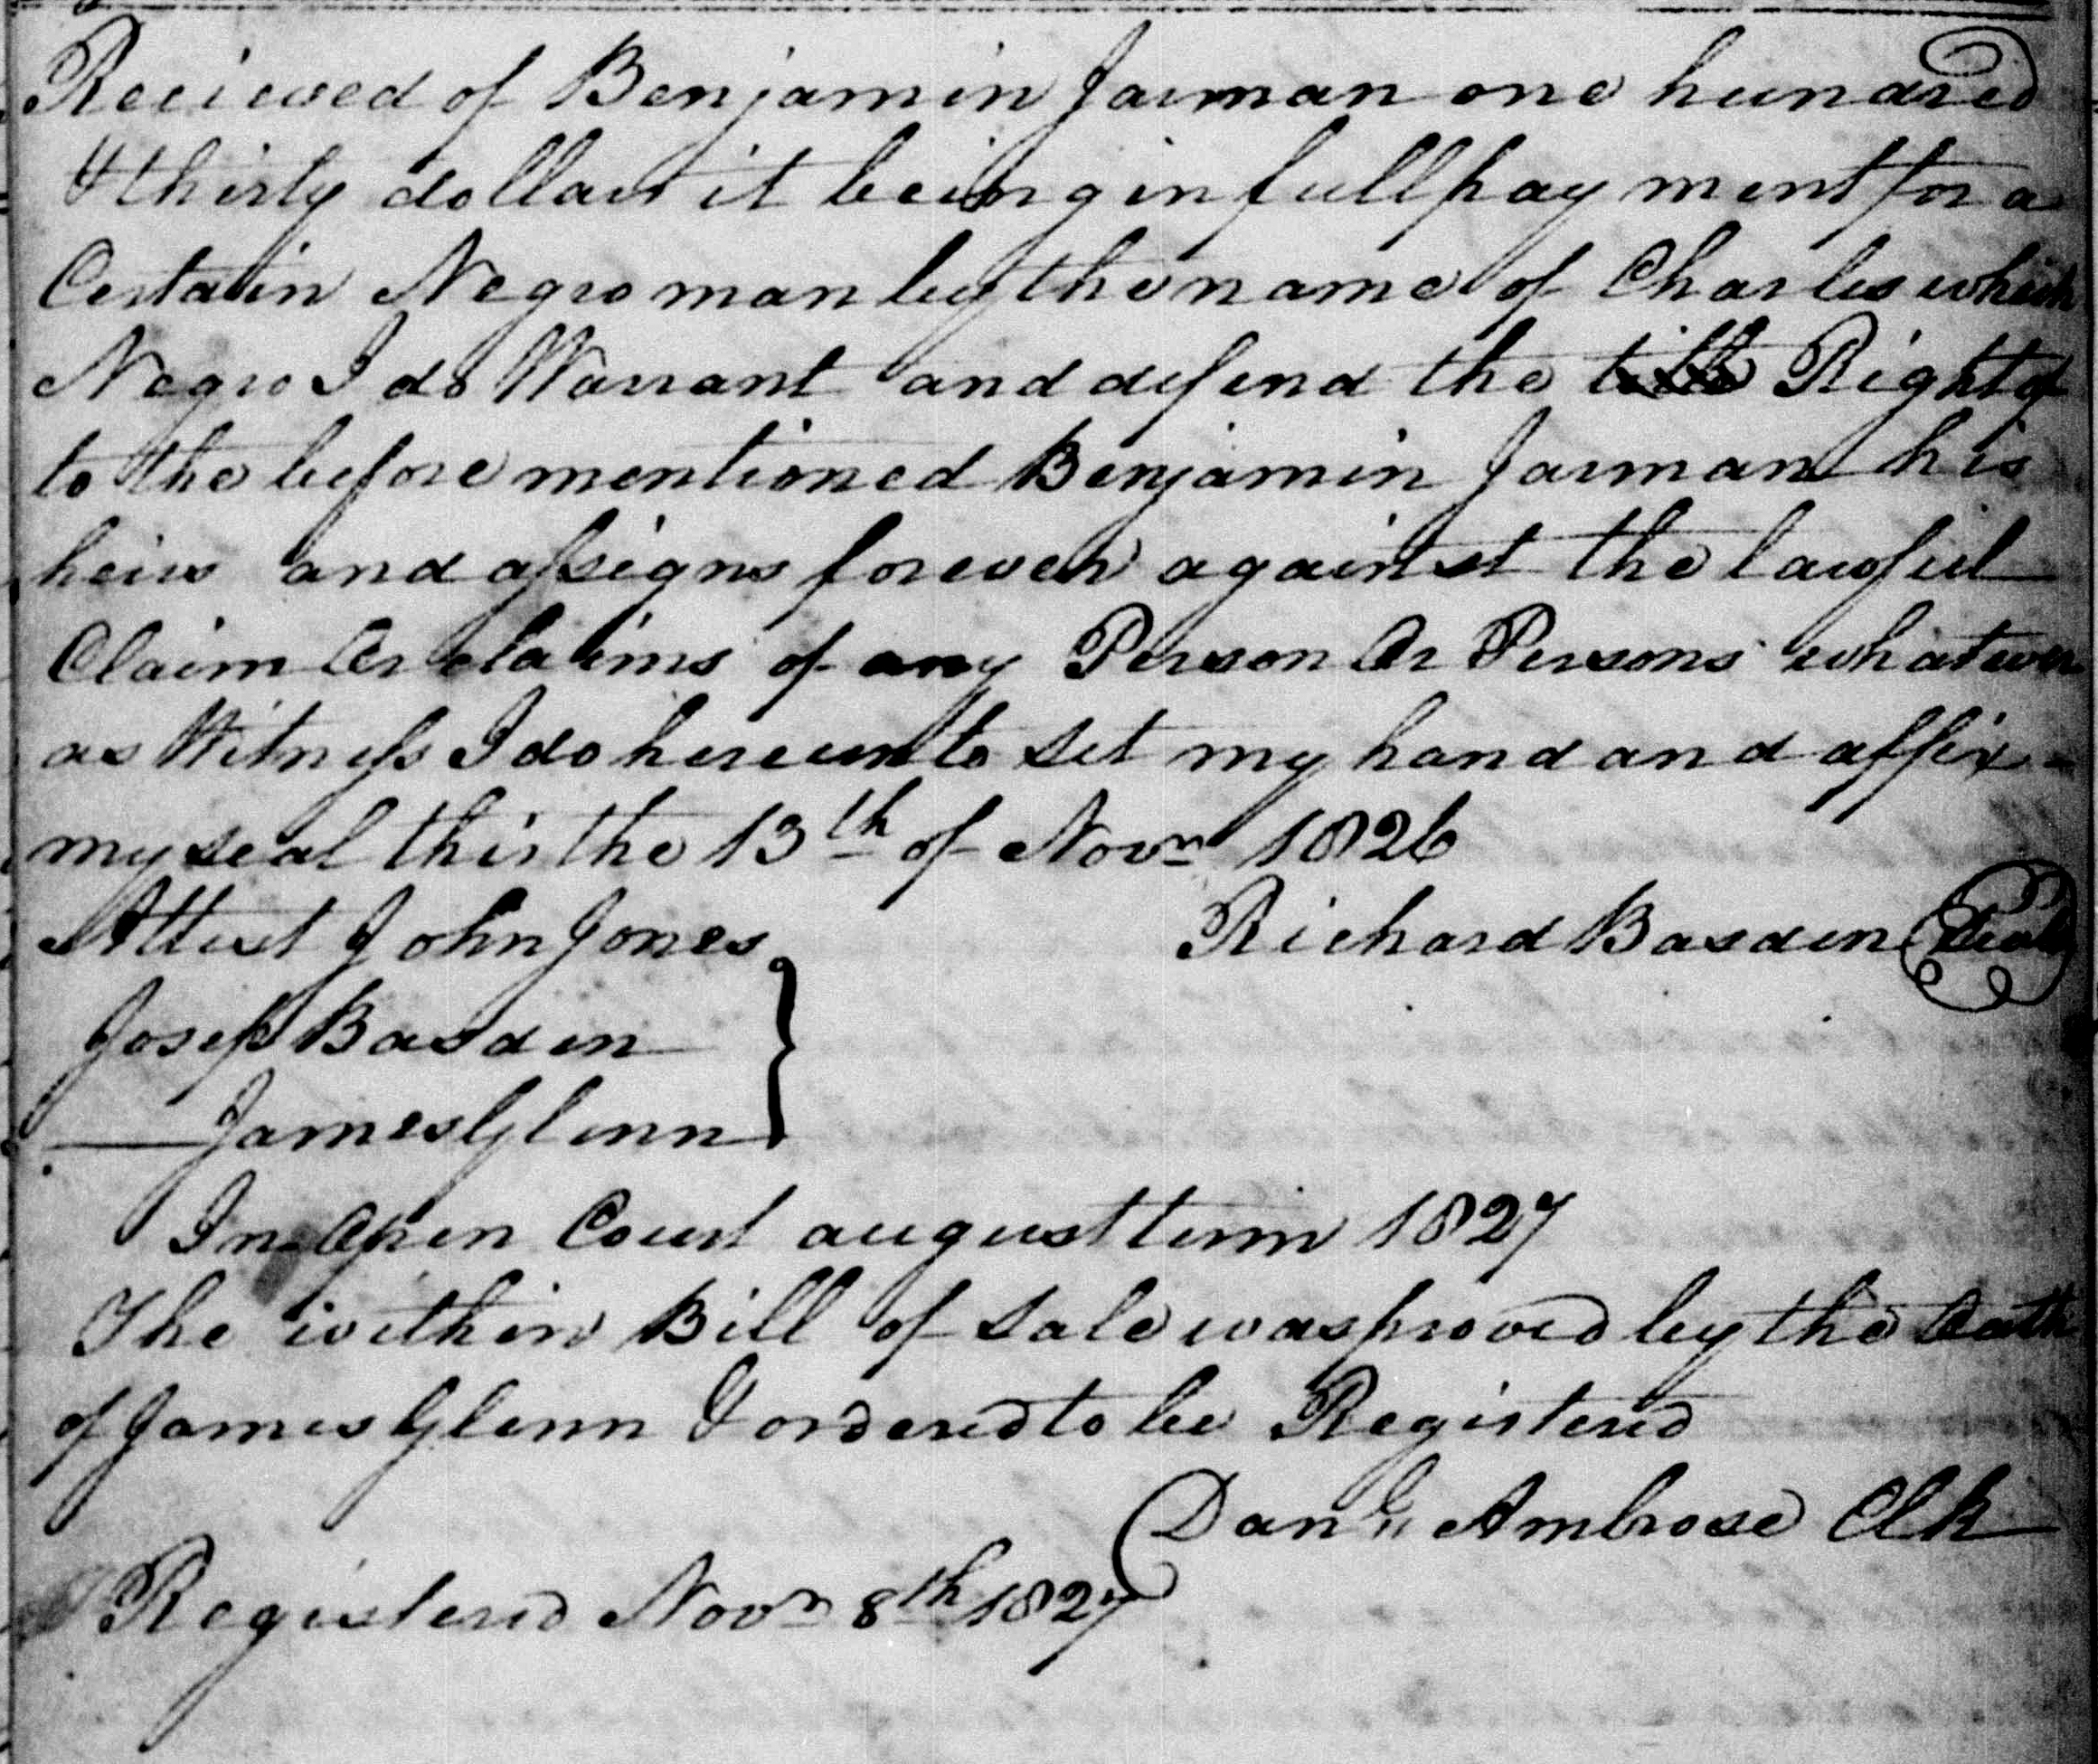 Recieved of Benjamin Jarman one hundred
& thirty dollars it being in full payment for a
Certain Negro man by the name of Charles which
Negro I do Warrant and defend the title Right of
to the before mentioned Benjamin Jarman his
heirs and assigns forever against the lawful
Claim Or claims of any Person Or Persons whatever
as Witness I do hereunto set my hand and affix
my seal this the 13th of Novr 1826
Attest John Jones
Richard Basden Seal
Josep Basden
James Glenn
In Open Court august term 1827
The within Bill of Sale was proved by the Oath
of James Glenn & ordered to be Registered
Danl Ambrose Clk
Registered Novr 8th 1827